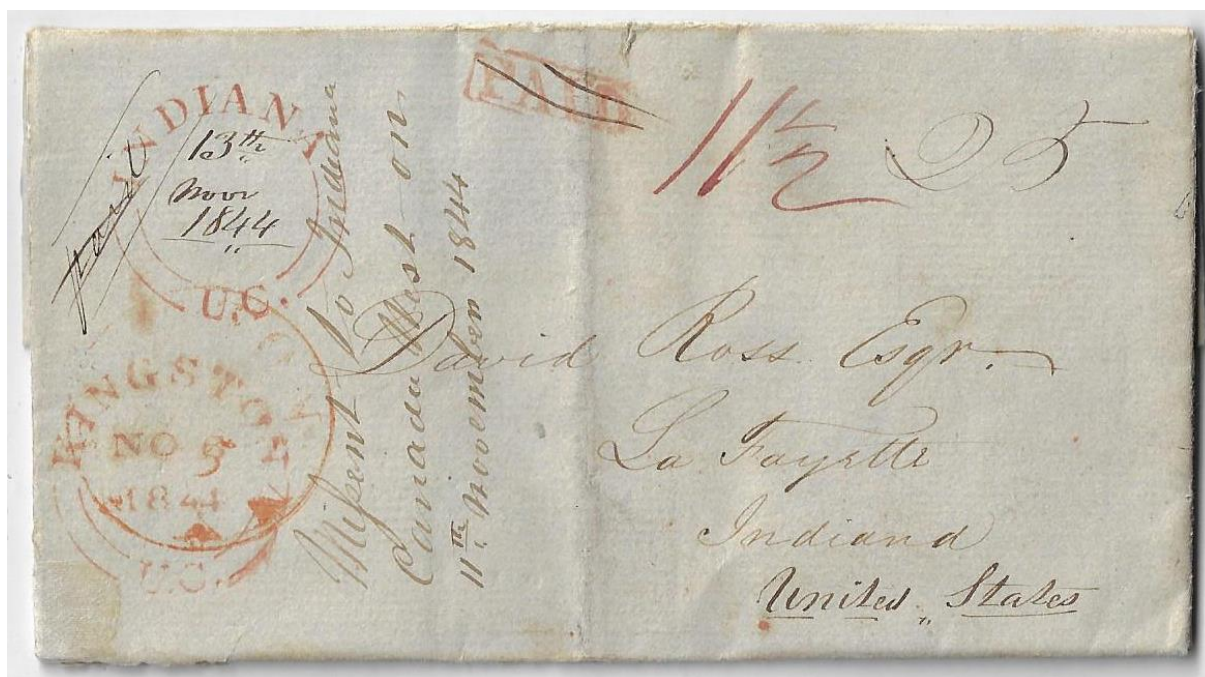 PAID
11½ 25
INDIANA
13th
Novr
1844
U.C.
paid
KINGSTON
NO 5
1844
U.C.
Missent to Indiana
Canada West on
11th November 1844
David Ross Esqr.
La Fayette
Indiana
United States